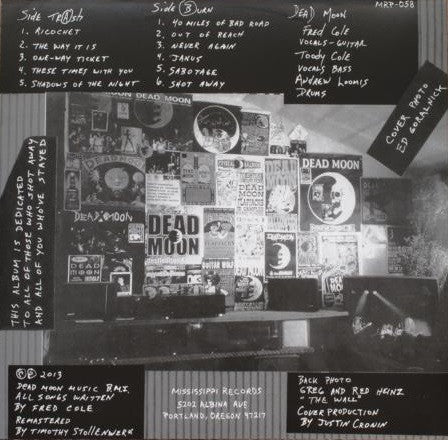 Side Tr(A)sh
1. RICOCHET
2. THE WAY IT IS
3. ONE-WAY TICKET
4. THESE TIMES WITH YOU
5. SHADOWS OF THE NIGHT
Side (B)urn
1. 40 MILES OF BAD ROAD
2. OUT OF REACH
3. NEVER AGAIN
4. JANUS
5. SABOTAGE
6. SHOT AWAY
DEAD MOON
FRED COLE
VOCALS-GUITAR
TOODY COLE
VOCALS BASS
ANDREW LOOMIS
DRUMS
MRP-058
COVER PHOTO
ED GORALNICK
THIS ALBUM IS DEDICATED
TO ALL OF THOSE WHO SHOT AWAY
AND ALL OF YOU WHO'VE STAYED
DEAD MOON
DEAD MOON
DEAD MOON
DEAD
MOON
DEAD
MOON
GUITAR WOLF
©℗ 2013
DEAD MOON MUSIC BMI.
ALL SONGS WRITTEN
BY FRED COLE
REMASTERED
BY TIMOTHY STOLLENWERK
MISSISSIPPI RECORDS
5202 ALBINA AVE.
PORTLAND, OREGON 97217
BACK PHOTO
GREG AND RED HEINZ
"THE WALL"
COVER PRODUCTION
BY JUSTIN CRONIN